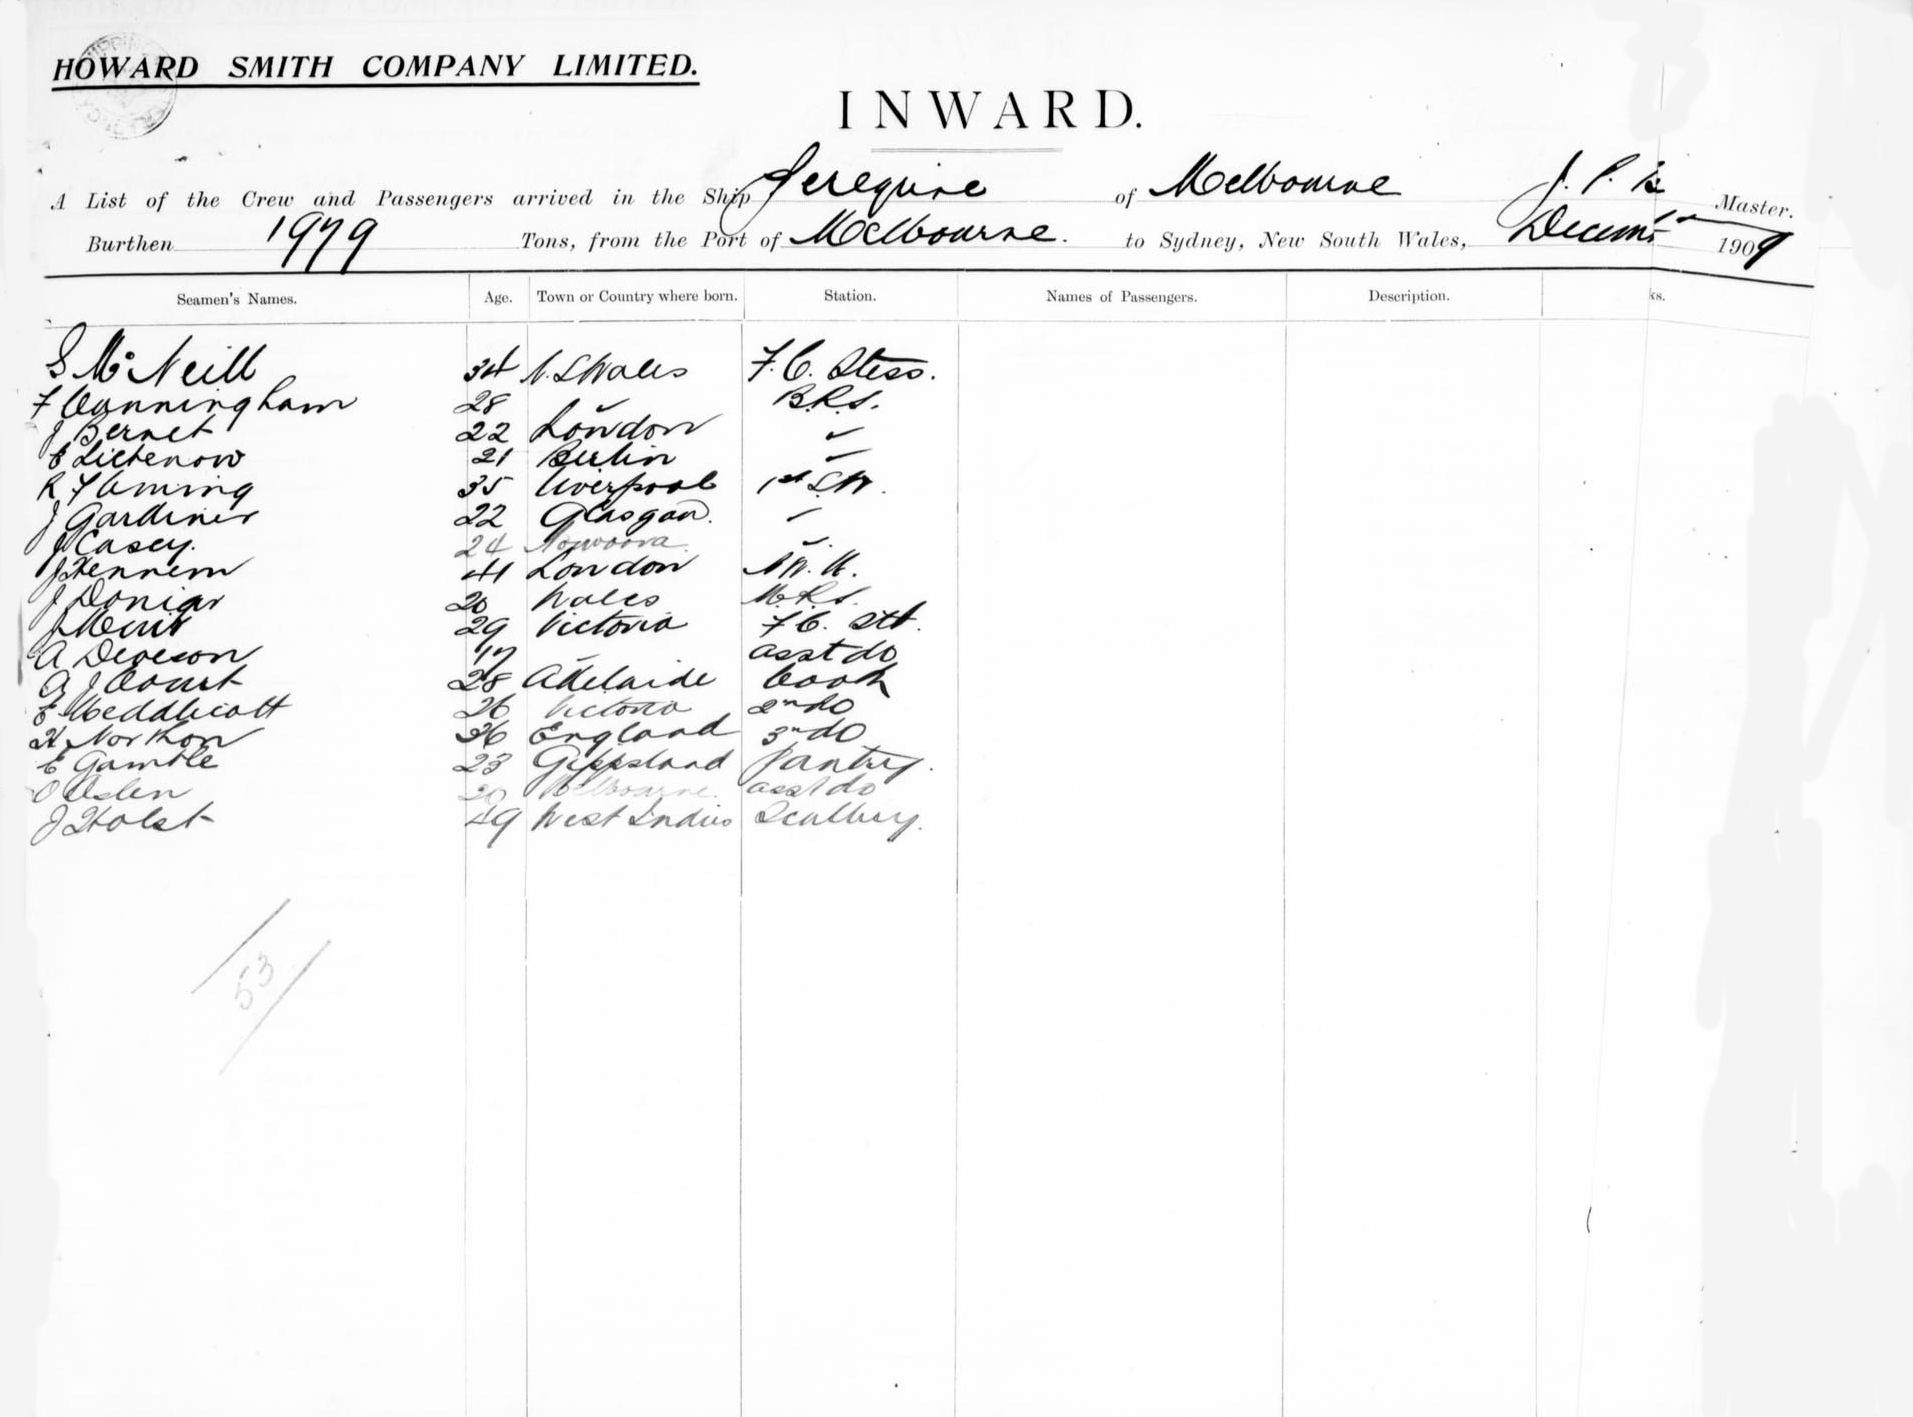 HOWARD SMITH COMPANY LIMITED.
INWARD.
A List of the Crew and Passengers arrived in the Ship Peregrine of Melbourne J. P. Master.
Burthen 1979 Tons, from the Port of Melbourne. to Sydney, New South Wales, 1909
Seamen's Names. Age. Town or Country where born. Station. Names of Passengers. Description. ks.
S McNeill 34 N. S Wales F. C. Stess.
F Cunningham 28 " B.R.S.
J Bernet 22 London "
E Lichenow 21 Berlin "
R Fleming 35 Liverpool 1st S.W.
J Gardiner 22 Glasgow. "
J Casey. 24 "
J Hennem 41 London N.W.
J 20 Wales M.R.S.
J 29 Victoria F.C. Std.
A Deveson 17 " asst do
A J Court 28 Adelaide Cook
E Meddlicott 26 Victoria 2nd do
H Northon 36 England 3rd do
E Gamble 23 Gippsland Pantry.
O Oslen 20 Melbourne. asst do
J Holst 49 West Indies Scullery.
53